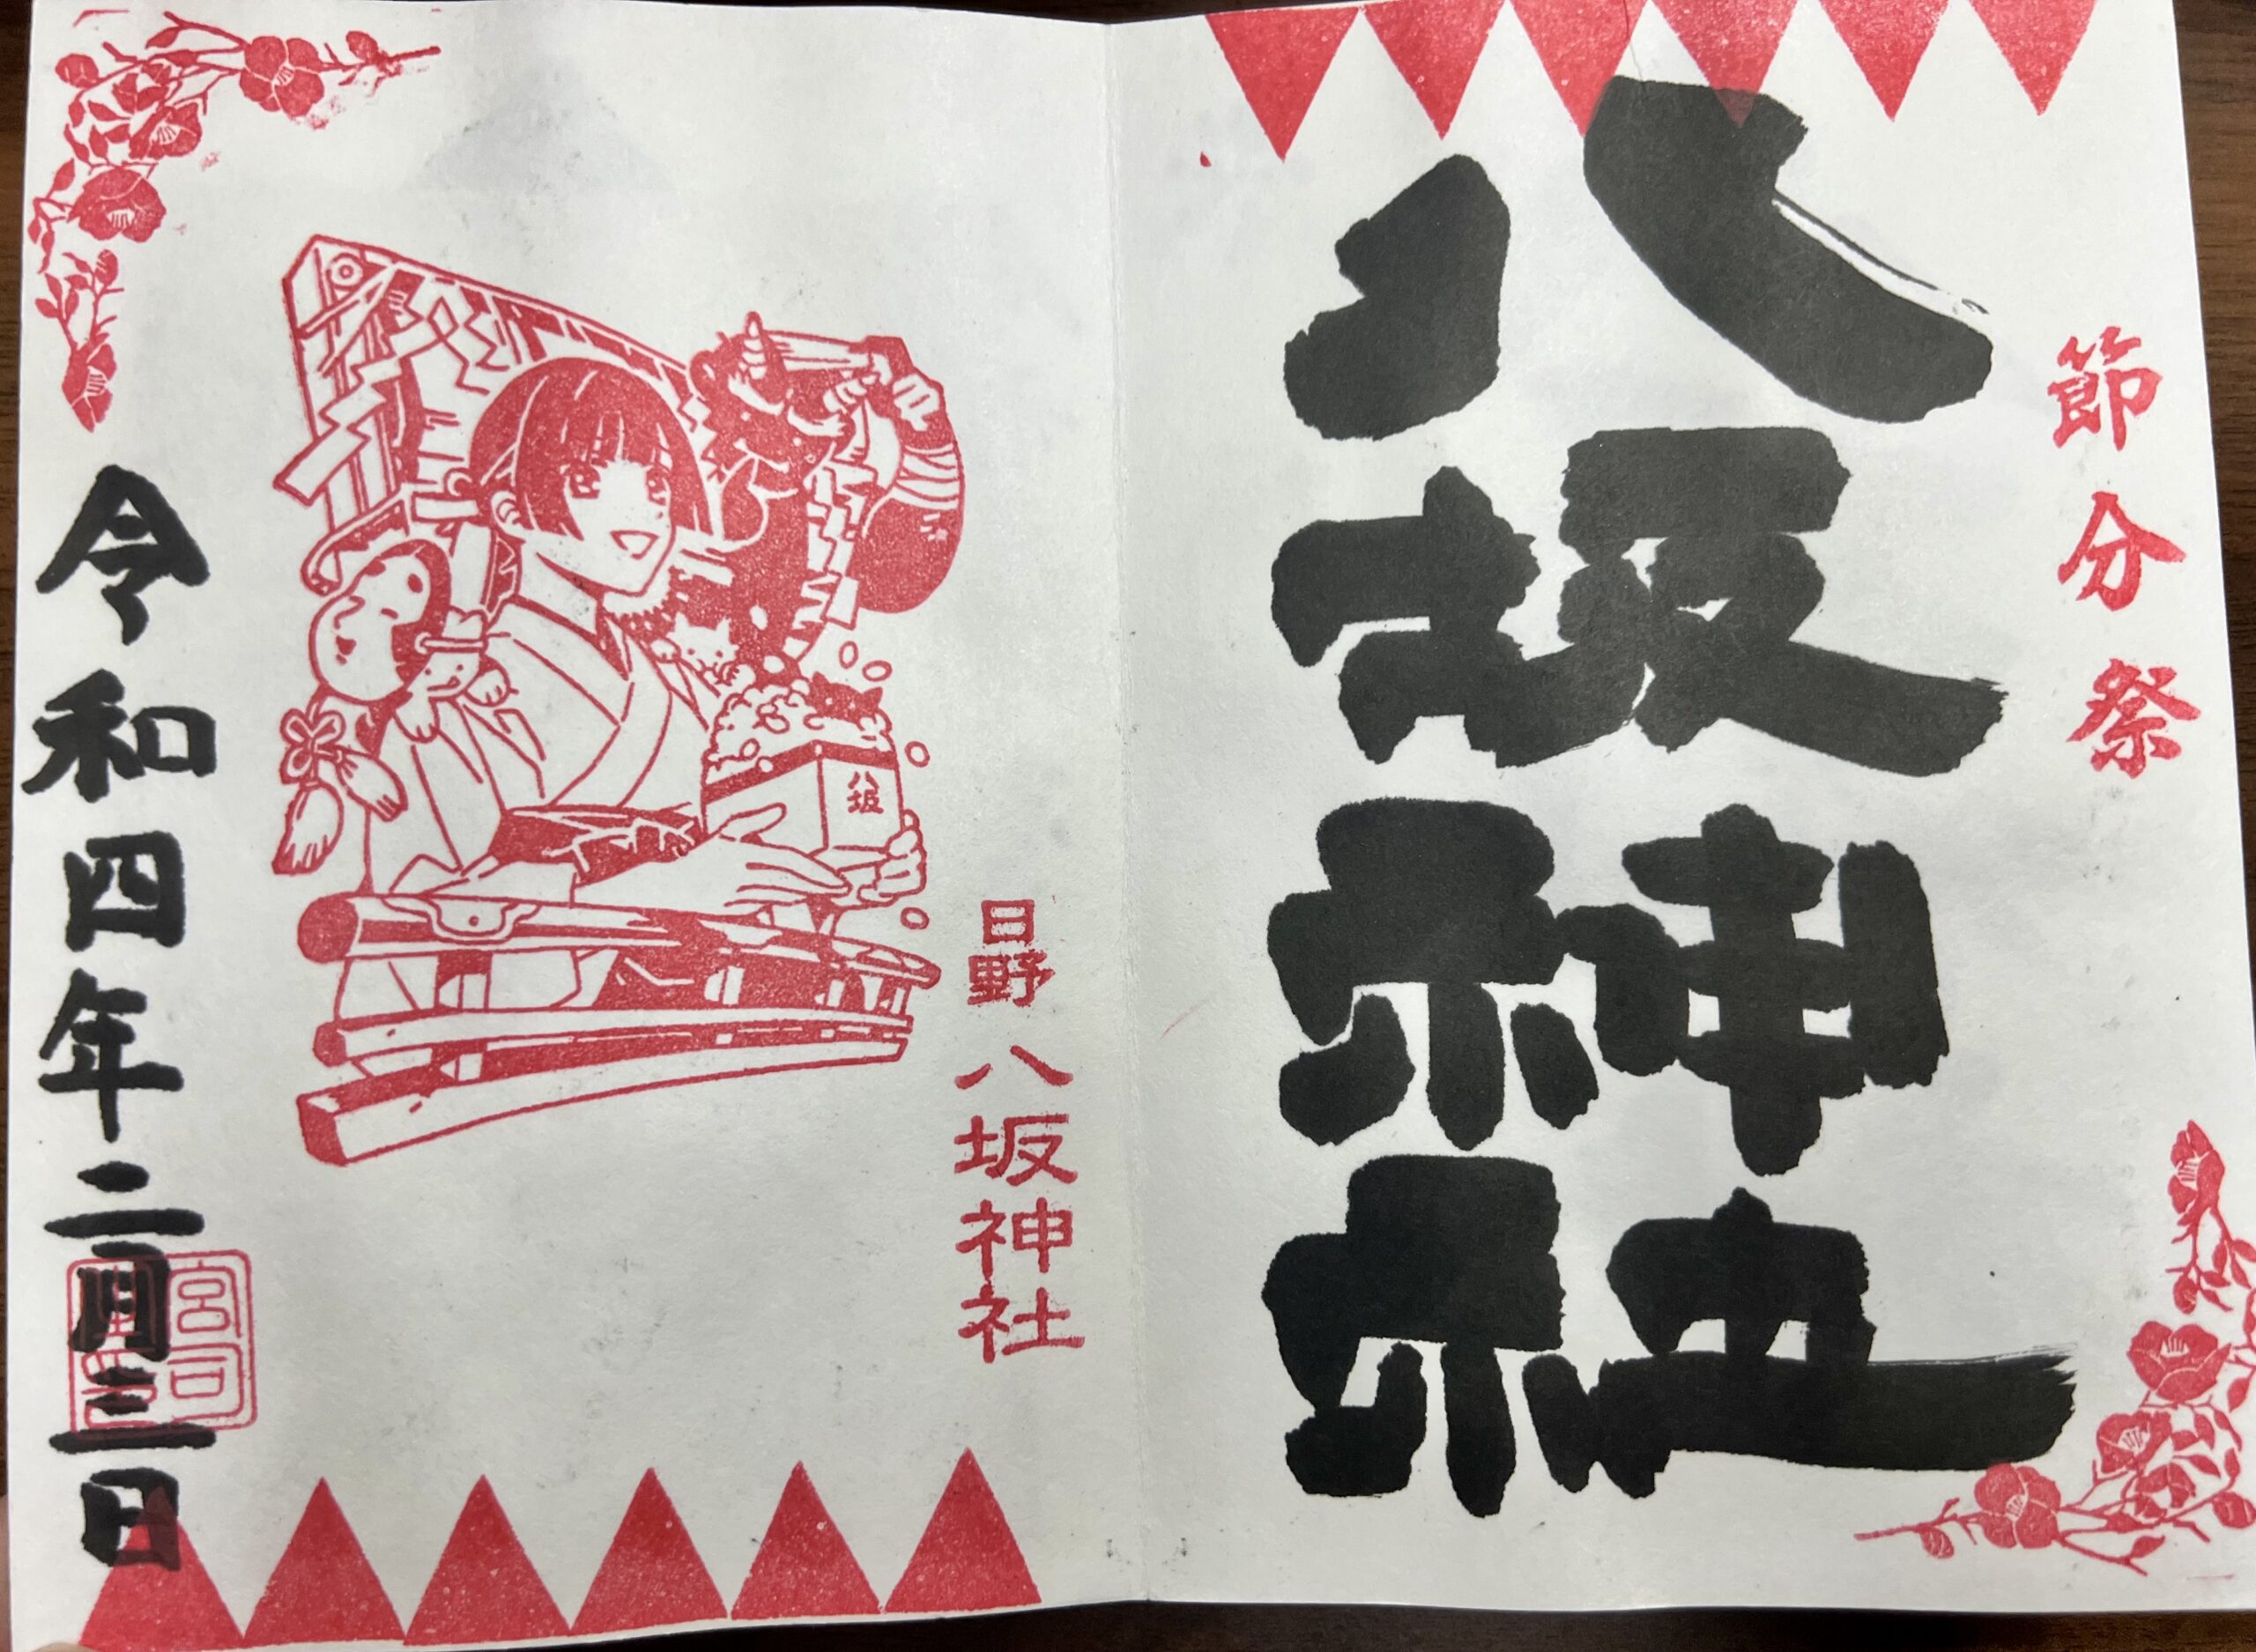 節分祭
八坂神社
日野 八坂神社
八坂
令和四年二月三日
宮司